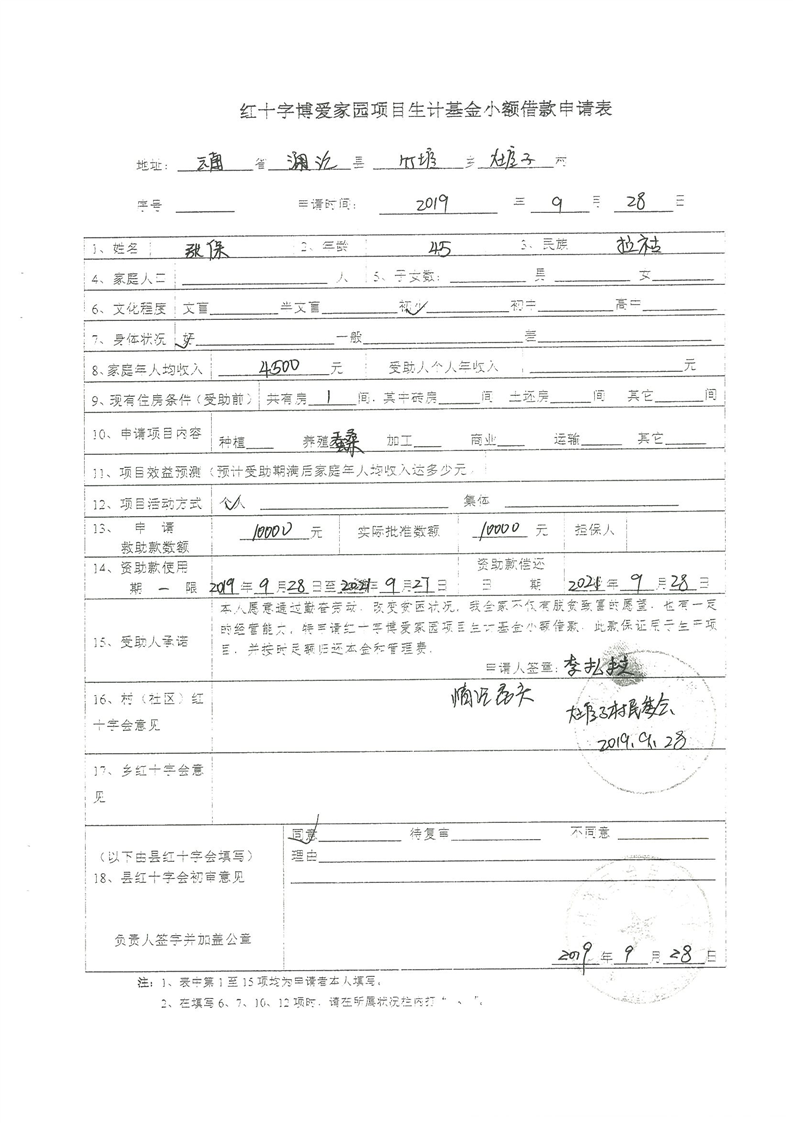 红十字博爱家园项目生计基金小额借款申请表
地址： 云南 省 澜沧 县 竹塘 乡 大塘子 村
序号 申请时间： 2019 年 9 月 28 日
1、姓名 张保 2、年龄 45 3、民族 拉祜
4、家庭人口 人 5、子女数： 男 女
6、文化程度 文盲 半文盲 初小 初中 高中
7、身体状况 好 一般 差
8、家庭年人均收入 4500 元 受助人个人年收入 元
9、现有住房条件（受助前） 共有房 1 间，其中砖房 间 土坯房 间 其它 间
10、申请项目内容 种植 养殖 蚕桑 加工 商业 运输 其它
11、项目效益预测（预计受助期满后家庭年人均收入达多少元）
12、项目活动方式 个人 集体
13、 申 请 救助款数额 10000 元 实际批准数额 10000 元 担保人
14、资助款使用 期 限 2019 年 9 月 28 日至 2021 年 9 月 27 日 资助款偿还 日 期 2021 年 9 月 28 日
15、受助人承诺
本人愿意通过勤奋劳动，改变贫困状况，我全家不仅有脱贫致富的愿望，也有一定
的经营能力，特申请红十字博爱家园项目生计基金小额借款，此款保证用于生产项
目，并按时足额归还本金和管理费。
申请人签章：李扎
16、村（社区）红
十字会意见
情况属实
大塘子村民委会
2019.9.28
17、乡红十字会意
见
同意 待复审 不同意
（以下由县红十字会填写） 理由
18、县红十字会初审意见
负责人签字并加盖公章
2019 年 9 月 28 日
注： 1、表中第 1 至 15 项均为申请者本人填写。
2、在填写 6、7、10、12 项时，请在所属状况栏内打“ 、 ”。